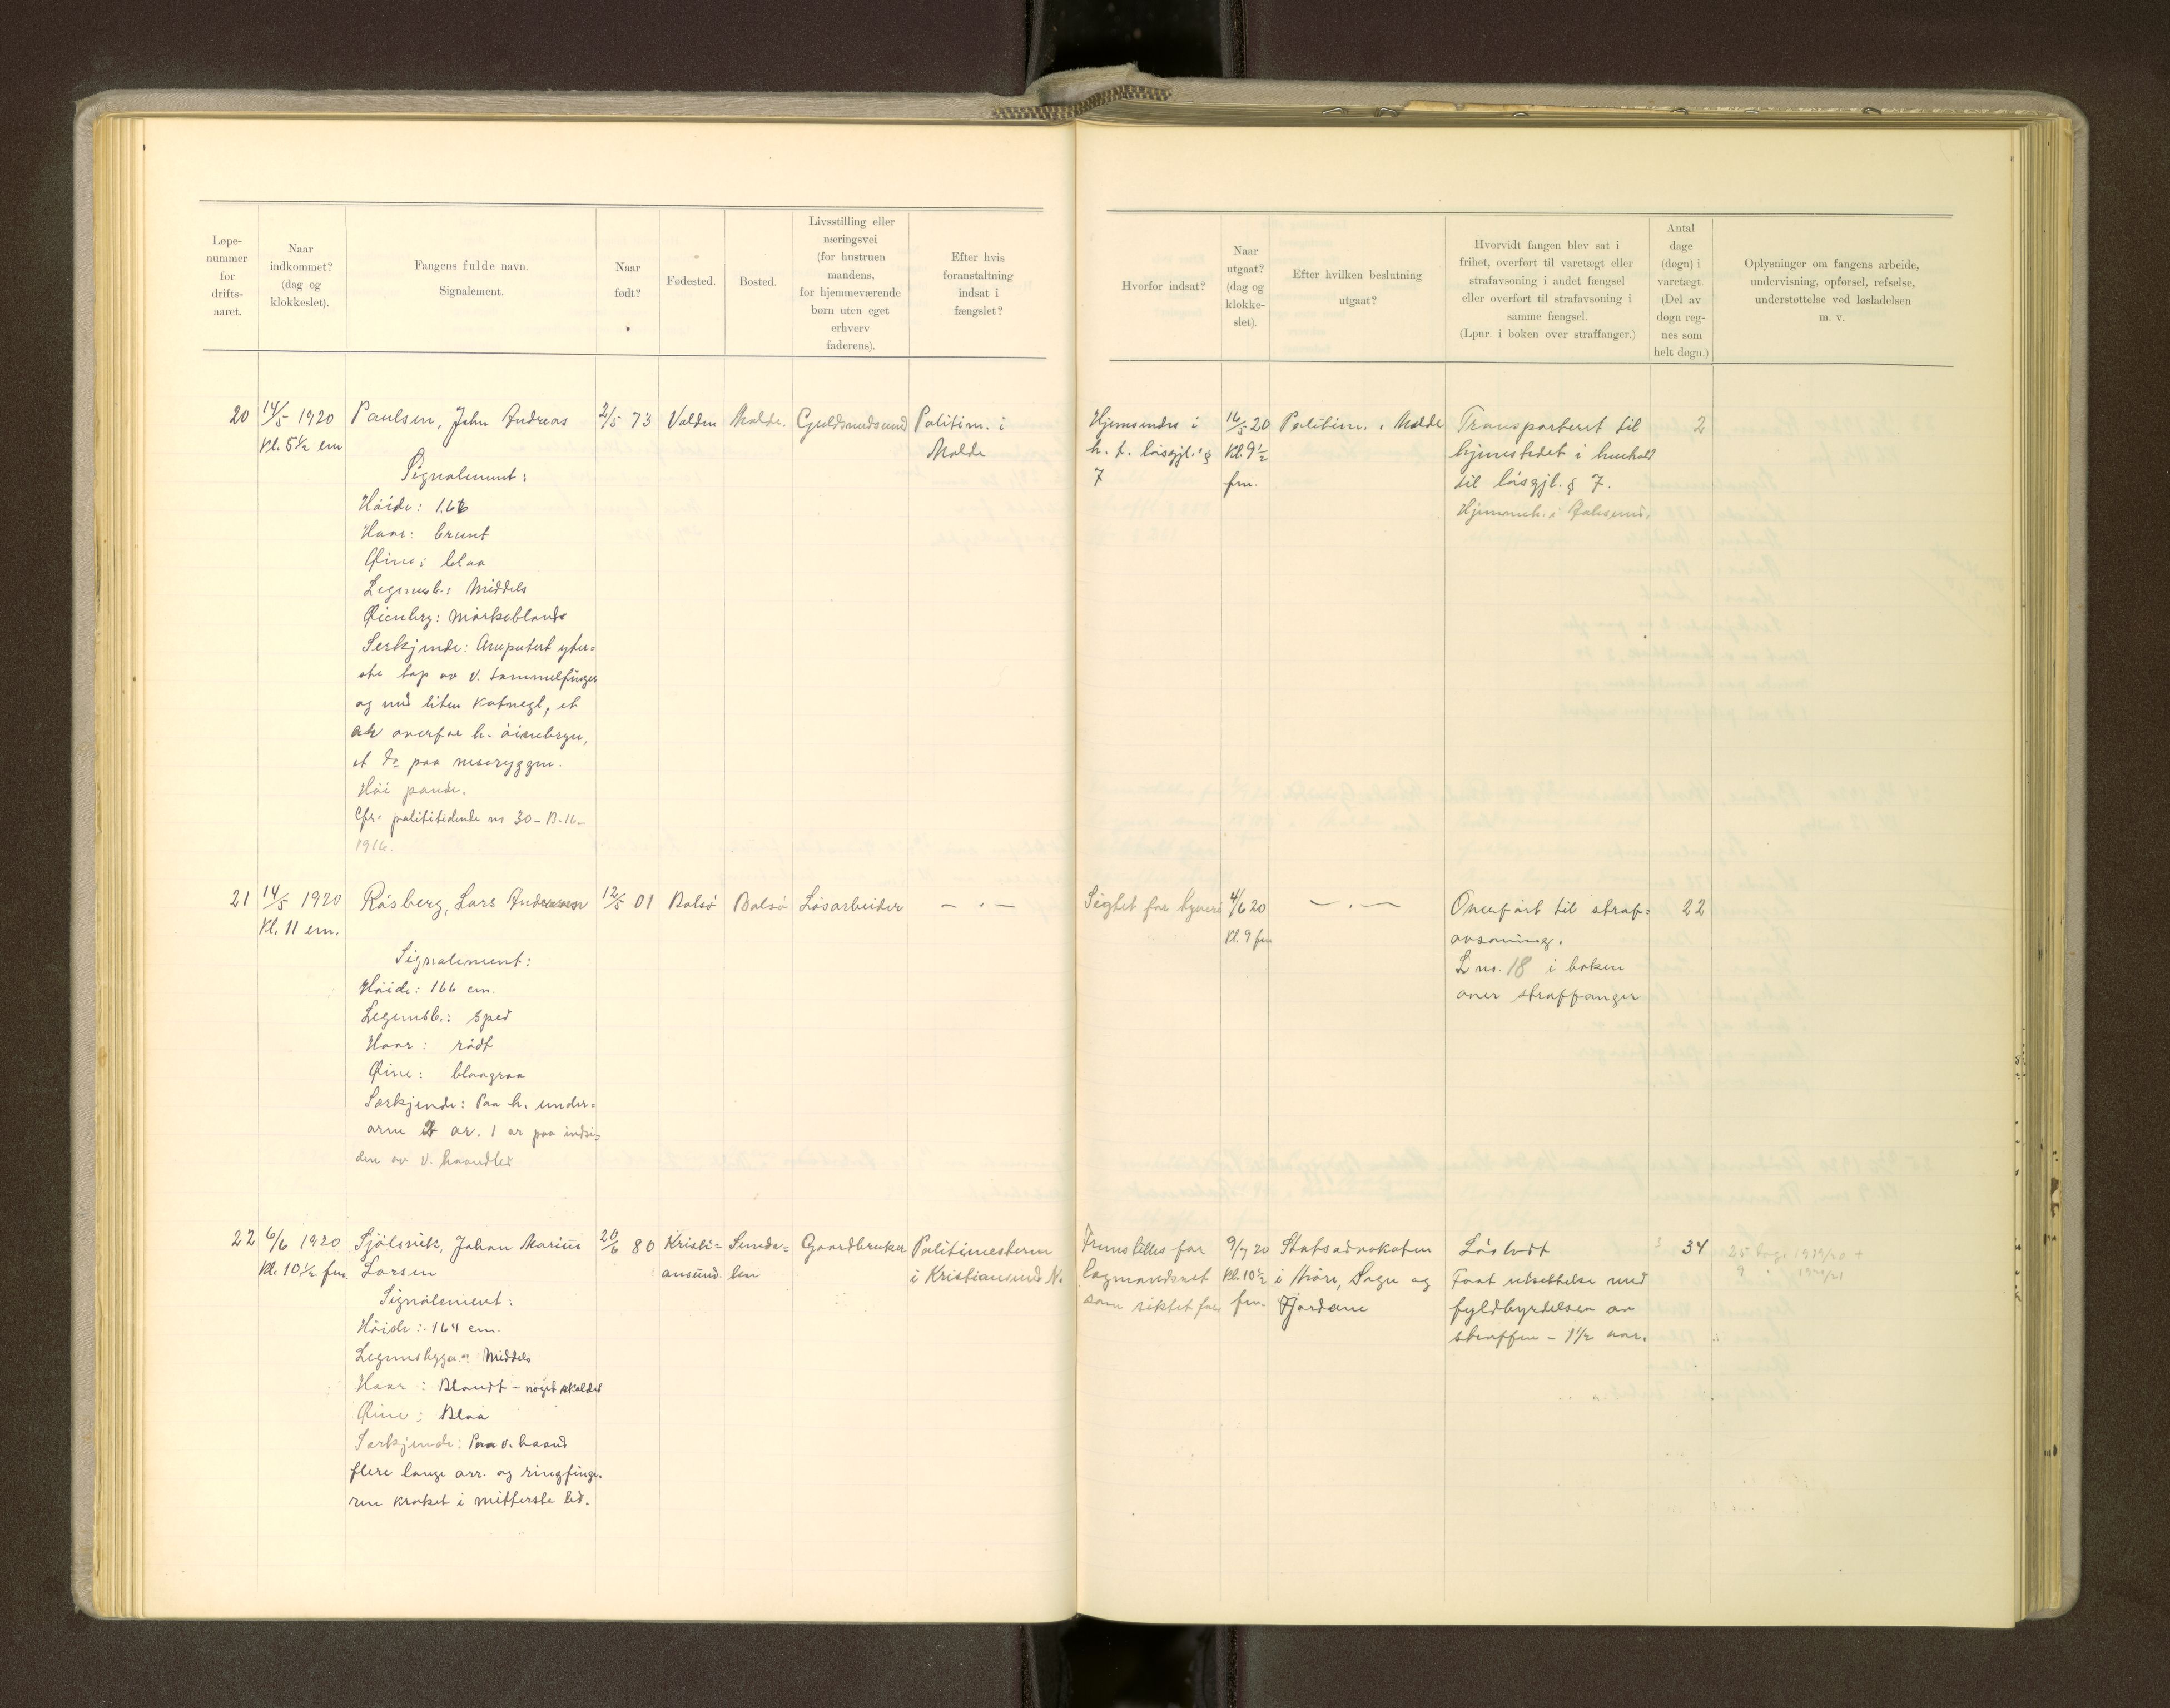 Løpe-
nummer
for
drifts-
aaret.
Naar
indkommet?
(dag og
klokkeslet).
Fangens fulde navn.
Signalement.
Naar
født?
Fødested.
Bosted.
Livsstilling eller
næringsvei
(for hustruen
mandens,
for hjemmeværende
børn uten eget
erhverv
faderens).
Efter hvis
foranstaltning
indsat i
fængslet?
Hvorfor indsat?
Naar
utgaat?
(dag og
klokke-
slet).
Efter hvilken beslutning
utgaat?
Hvorvidt fangen blev sat i
frihet, overført til varetægt eller
strafavsoning i andet fængsel
eller overført til strafavsoning i
samme fængsel.
(Lpnr. i boken over straffanger.)
Antal
dage
(døgn) i
varetægt.
(Del av
døgn reg-
nes som
helt døgn.)
Oplysninger om fangens arbeide,
undervisning, opførsel, refselse,
understøttelse ved løsladelsen
m. v.
20 14/5 1920 Paulsen, John Andreas 2/5 73 Molde. Guldsmedsvend Politim. i
Kl. 5½ em Molde
Signalement:
Høide:
Haar: brunt
Øine: blaa
Legemsb.: Middels
Øienbryn: mørkeblonde
Særkjende: Amputert yter=
ste led av v. tommelfinger
og med liten negl, et
ar overfor h. øienbryn,
et do paa neseryggen.
Høi pande.
Cfr. polititidende nr 30-B-16-
1916.
Hjemsendes i
h. t. løsgjl. §
7
16/5 20
Kl. 9½
fm.
Politim. i Molde
Transporteret til
hjemstedet i henhold
til løsgjl. § 7.
2
21 14/5 1920 Røsberg, Lars Andersen 12/5 01 Bolsø Bolsø Løsarbeider — · —
Kl. 11 em.
Signalement:
Høide: 166 cm.
Legemsb.: sped
Haar: rødt
Øine: blaagraa
Særkjende: Paa h. under=
arm 2 ar. 1 ar paa indsi=
den av v. haandled
Sigtet for tyveri
4/6 20
Kl. 9 fm
— · —
Overført til straf=
avsoning.
L. nr. 18 i boken
over straffanger
22
22 6/6 1920 Sjølsvik, Johan Marius 20/6 80 Kristi= Sunda= Gaardbruker Politimesteren
Kl. 10½ fm. Larsen ansund. len i Kristiansund N.
Signalement:
Høide: 164 cm.
Legemsbygn.: Middels
Haar: Blondt - noget skaldet
Øine: Blaa
Særkjende: Paa v. haand
flere lange arr. og ringfinge-
ren kroket i mitterste led.
Fremstilles for
lagmandsret
som siktet for
9/7 20
Kl. 10½
fm.
Statsadvokaten
i Møre, Sogn og
Fjordane
Løsladt
Faat utsettelse med
fyldbyrdelsen av
straffen - 1½ aar.
34
25 dage 1919/20 +
9 1920/21